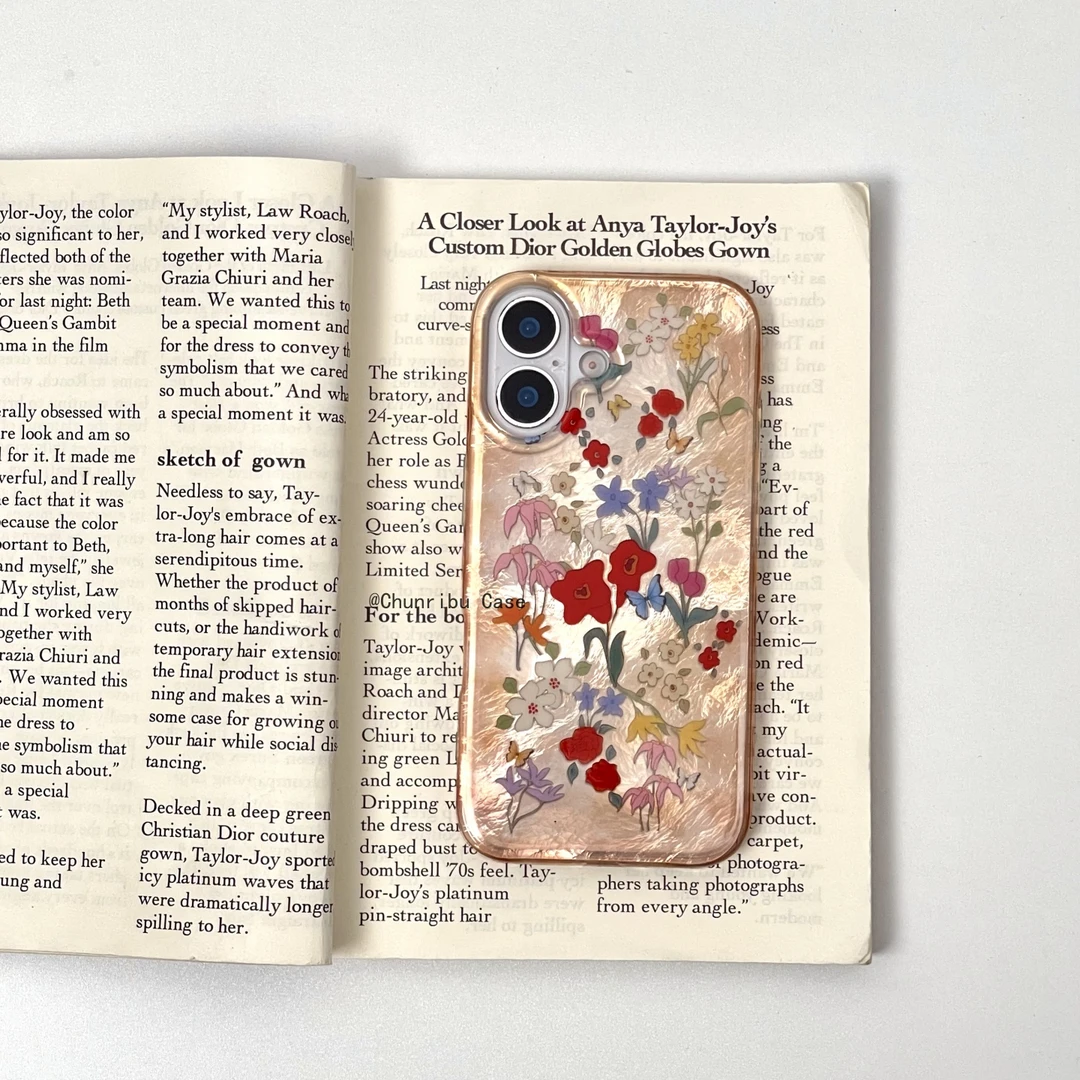 ylor-Joy, the color
so significant to her,
flected both of the
ters she was nomi-
for last night: Beth
Queen's Gambit
mma in the film
erally obsessed with
re look and am so
l for it. It made me
verful, and I really
e fact that it was
because the color
portant to Beth,
and myself,” she
My stylist, Law
nd I worked very
ogether with
razia Chiuri and
. We wanted this
pecial moment
he dress to
e symbolism that
so much about.”
a special
t was.
ed to keep her
ung and
“My stylist, Law Roach,
and I worked very closel
together with Maria
Grazia Chiuri and her
team. We wanted this to
be a special moment and
for the dress to convey th
symbolism that we cared
so much about.” And wha
a special moment it was.
sketch of gown
Needless to say, Tay-
lor-Joy's embrace of ex-
tra-long hair comes at a
serendipitous time.
Whether the product of
months of skipped hair-
cuts, or the handiwork of
temporary hair extension
the final product is stun-
ning and makes a win-
some case for growing ou
your hair while social dis
tancing.
Decked in a deep green
Christian Dior couture
gown, Taylor-Joy sported
icy platinum waves that
were dramatically longer
spilling to her.
A Closer Look at Anya Taylor-Joy's
Custom Dior Golden Globes Gown
Last night
Joy
com
curve-s
ess
The striking
bratory, and
24-year-old
Actress Gold
her role as
chess wunde
soaring chee
Queen's Gam
show also w
Limited Ser
@Chunribu Case
For the bo
Taylor-Joy
image archit
Roach and
director Ma
Chiuri to re
ing green
and accomp
Dripping w
the dress car
draped bust to
bombshell '70s feel. Tay-
lor-Joy's platinum
pin-straight hair
ss
has
ng
the
g a
“Ev-
part of
the red
nd the
ogue
e are
Work-
demic—
on red
e the
ach. “It
my
actual-
bit vir-
ave con-
product.
carpet,
photogra-
phers taking photographs
from every angle.”